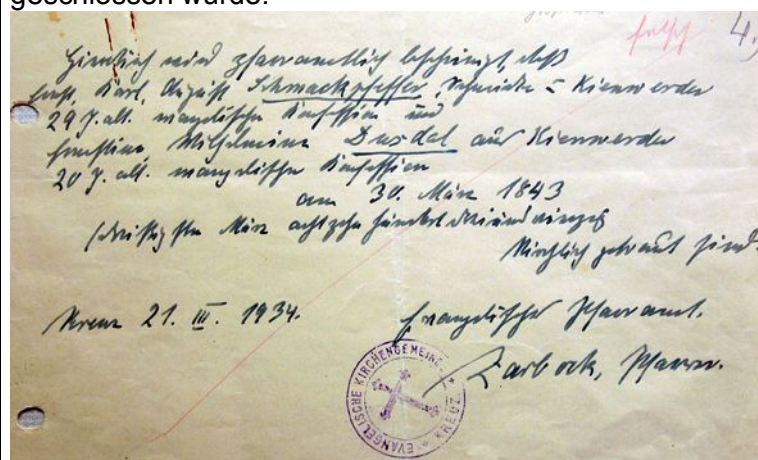 geschlossen wurde.
falsch 4.)
Hiermit wird pfarramtlich bescheinigt, daß
Ernst, Karl, August Schmackpfeffer, Schneider = Kienwerder
29 J. alt. evangelischer Konfession und
Ernstine Wilhelmine Dusdal aus Kienwerder
20 J. alt. evangelischer Konfession
am 30. März 1843
(dreißigsten März achtzehnhundertdreiundvierzig
kirchlich getraut sind.
Kreuz 21. III. 1934.
Evangelisches Pfarramt.
Zarbock, Pfarrer.
EVANGELISCHE KIRCHENGEMEINDE * KREUZ *